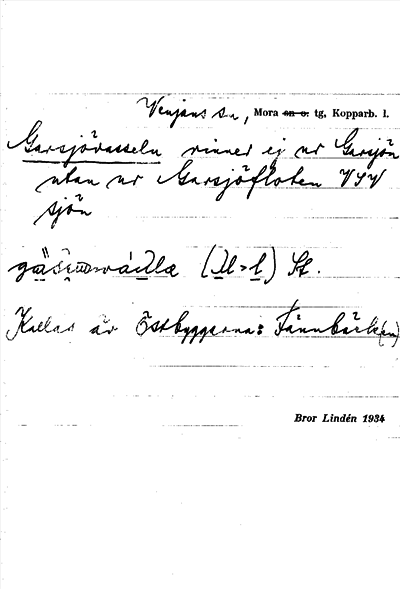 Venjans sn, Mora sn o. tg, Kopparb. l.
Garsjövasseln rinner ej ur Garsjön
utan ur Garsjöfloten VSV
sjön
(ll > l) St.
Kallas av Östbyggarna: Tännbäck(en)
Bror Lindén 1934